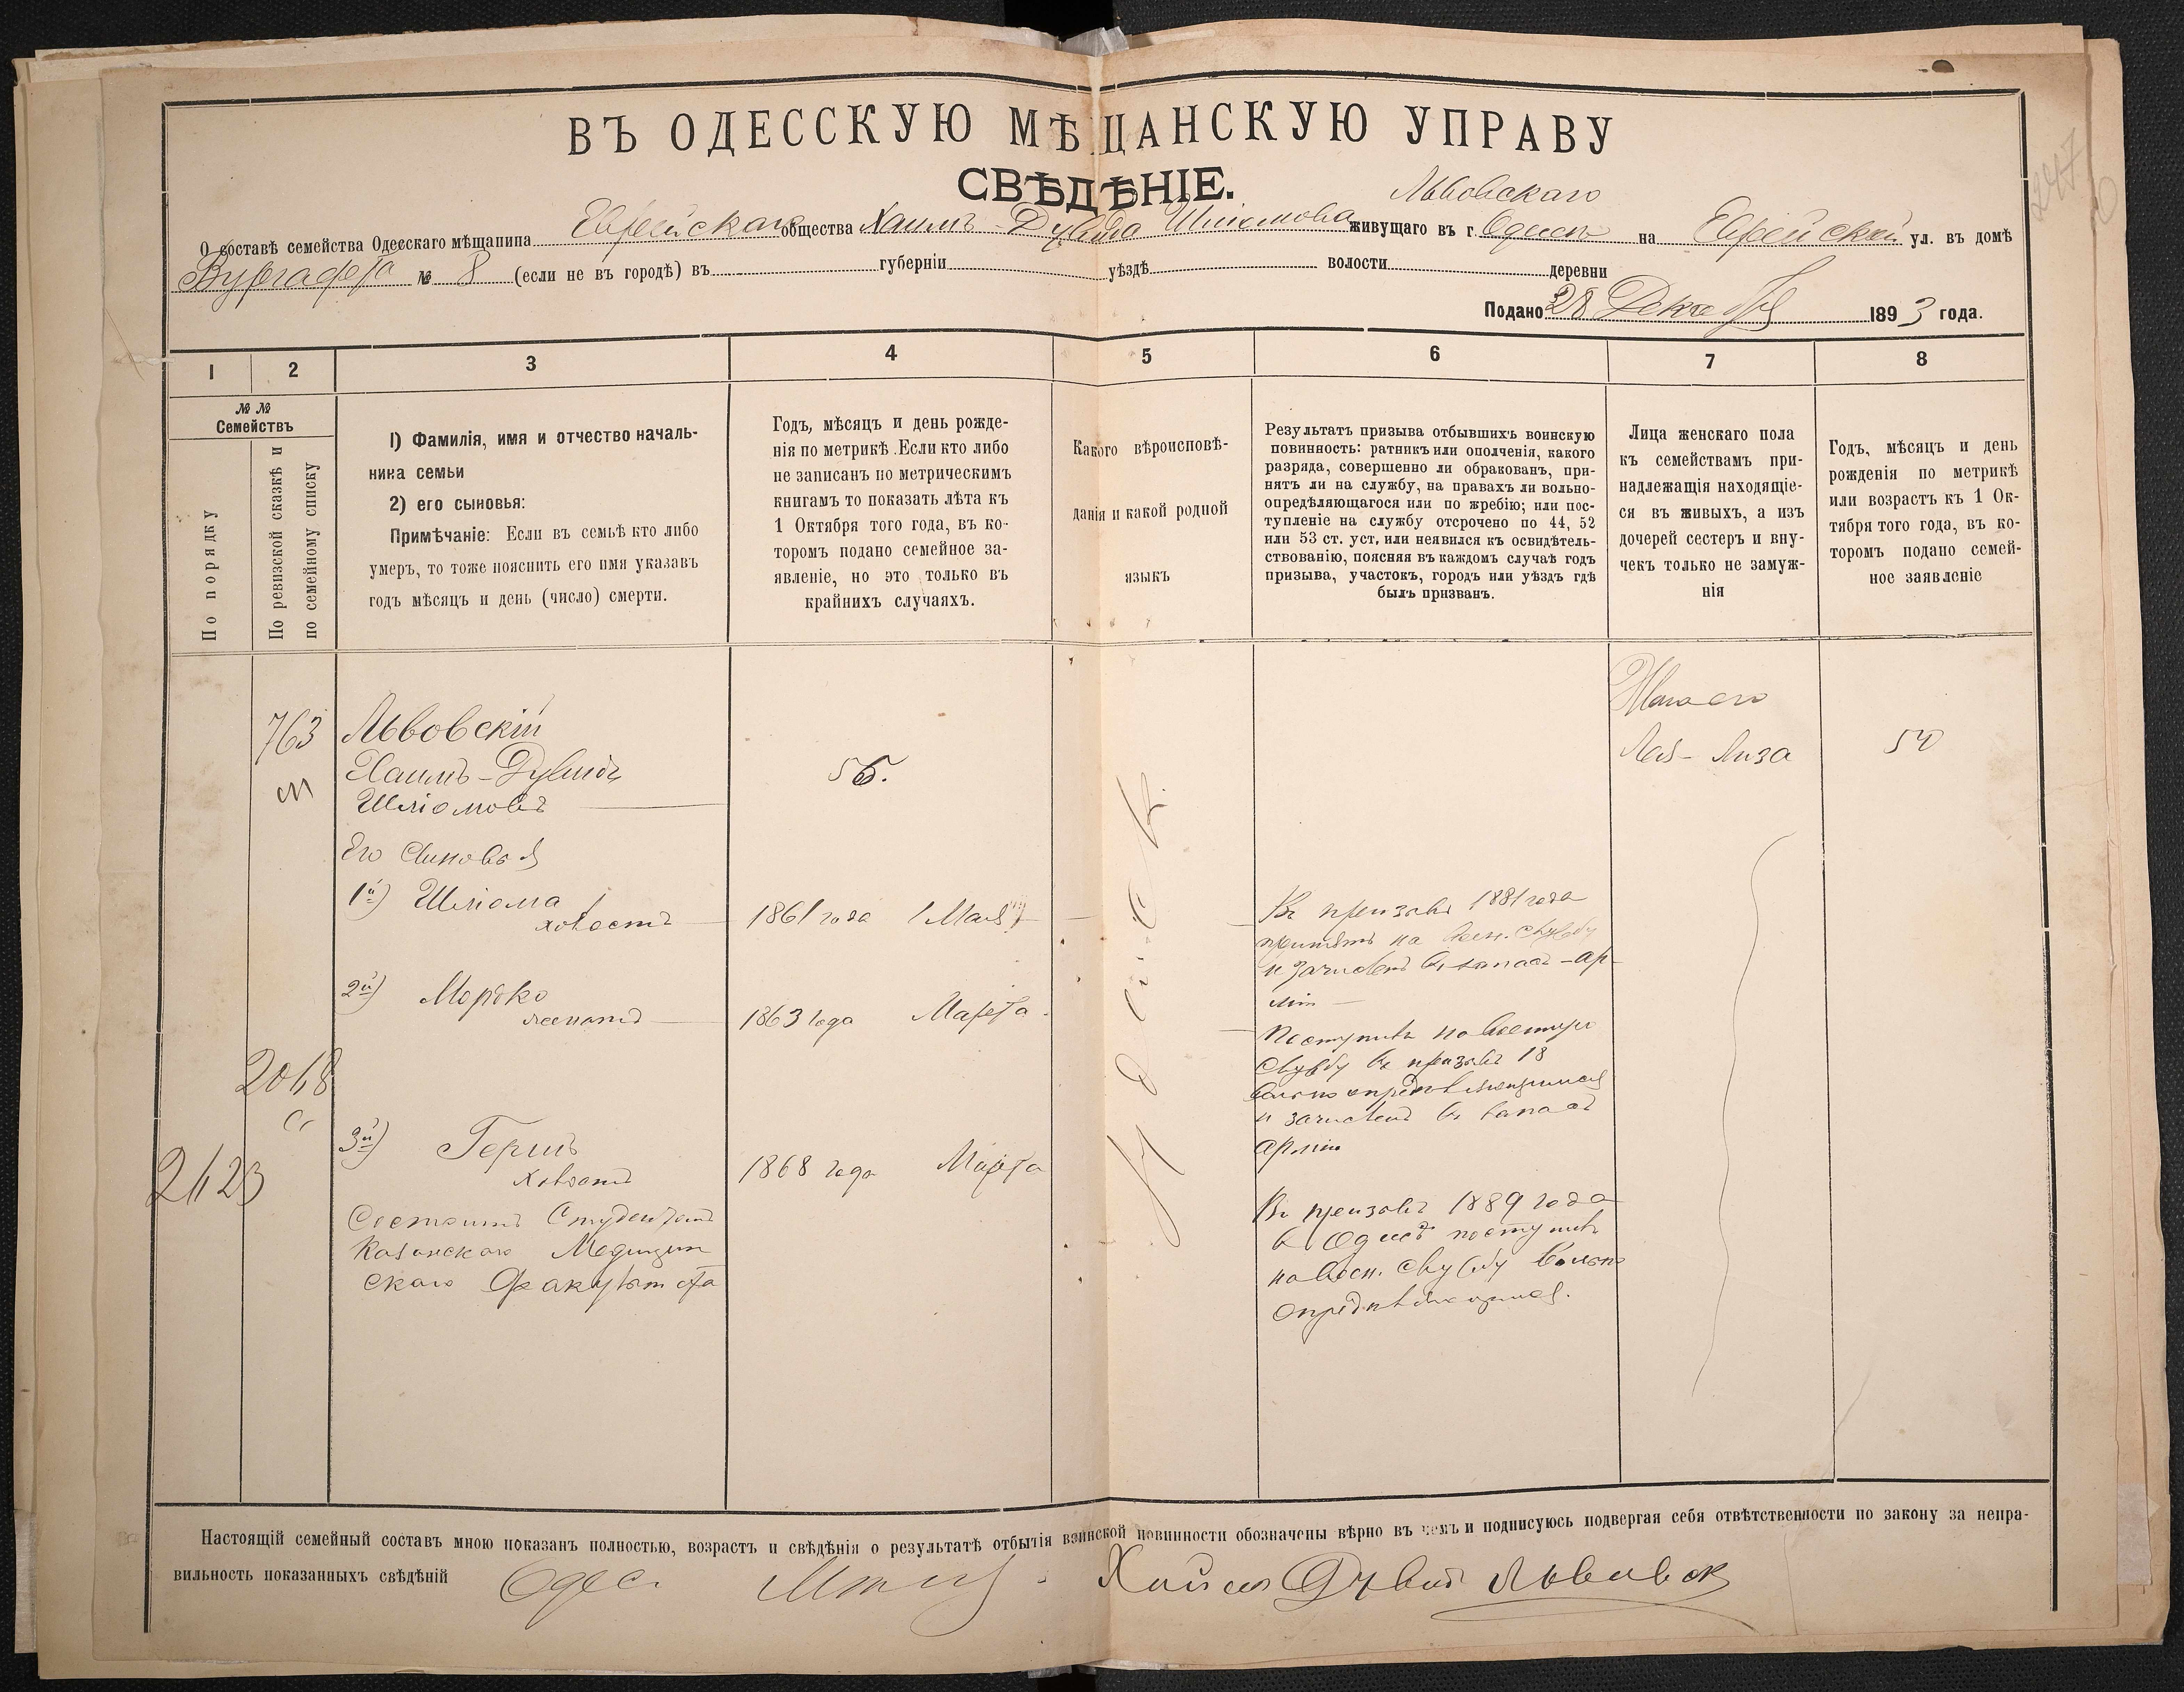 ВЪ ОДЕССКУЮ МѢЩАНСКУЮ УПРАВУ
СВѢДѢНІЕ.
Львовскаго
О составѣ семейства Одесскаго мѣщанина Еврейскаго общества Хаимъ-Дувида Шліомова живущаго въ г. Одессѣ на Еврейской ул. въ домѣ
№ 8 (если не въ городѣ) въ губерніи уѣздѣ волости деревни
Подано 28 Декабря 1893 года.
1 2 3 4 5 6 7 8
№ №
Семействъ
По порядку
По ревизской сказкѣ и
по семейному списку
1) Фамилія, имя и отчество началь-
ника семьи
2) его сыновья:
Примѣчаніе: Если въ семьѣ кто либо
умеръ, то тоже пояснить его имя указавъ
годъ мѣсяцъ и день (число) смерти.
Годъ, мѣсяцъ и день рожде-
нія по метрикѣ. Если кто либо
не записанъ по метрическимъ
книгамъ то показать лѣта къ
1 Октября того года, въ ко-
торомъ подано семейное за-
явленіе, но это только въ
крайнихъ случаяхъ.
Какого вѣроисповѣ-
данія и какой родной
языкъ
Результатъ призыва отбывшихъ воинскую
повинность: ратникъ или ополченія, какого
разряда, совершенно ли обракованъ, при-
нятъ ли на службу, на правахъ ли вольно-
опредѣляющагося или по жребію; или пос-
тупленіе на службу отсрочено по 44, 52
или 53 ст. уст, или неявился къ освидѣтель-
ствованію, поясняя въ каждомъ случаѣ годъ
призыва, участокъ, городъ или уѣздъ гдѣ
былъ призванъ.
Лица женскаго пола
къ семействамъ при-
надлежащія находящіе-
ся въ живыхъ, а изъ
дочерей сестеръ и вну-
чекъ только не замуж-
нія
Годъ, мѣсяцъ и день
рожденія по метрикѣ
или возрастъ къ 1 Ок-
тября того года, въ ко-
торомъ подано семей-
ное заявленіе
763
Львовскій
Хаимъ-Дувидъ
Шліомовъ
56.
Жена его
Лея-Лиза
50
Его сыновья
1й) Шліома
холостъ
1861 года 1 Мая
Въ призывъ 1881 года
принятъ на воен. службу
и зачисленъ въ запасъ ар-
міи
2й) Мордко
женатъ
1863 года Марта
Поступилъ на военную
службу въ призывъ 18
вольноопредѣляющимся
и зачисленъ въ запасъ
арміи
2018
3й) Гершъ
холостъ
1868 года Марта
2123
Состоитъ Студентомъ
Казанскаго Медицин
скаго Факультета
Въ призывъ 1889 года
въ Одессѣ поступилъ
на воен. службу вольно
опредѣляющимся.
Настоящій семейный составъ мною показанъ полностью, возрастъ и свѣдѣнія о результатѣ отбытія воинской повинности обозначены вѣрно въ чемъ и подписуюсь подвергая себя отвѣтственности по закону за непра-
вильность показанныхъ свѣдѣній Одес. Хаимъ Дувидъ